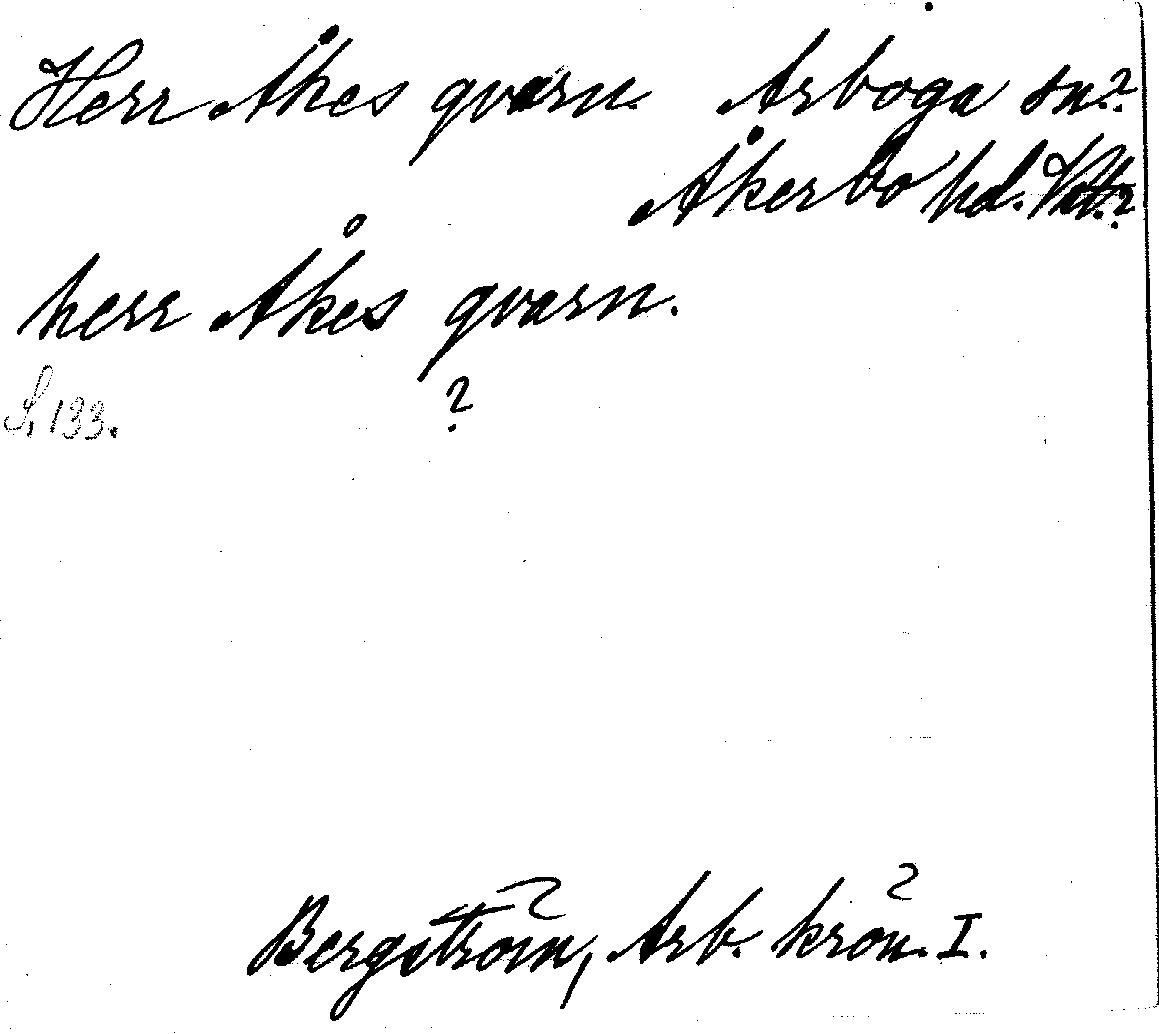 Herr Åkes qvarn. Arboga sn?
Åkerbo hd. Vstm.?
herr Åkes qvarn.
S. 133. ?
Bergström, Arb. krön. I.